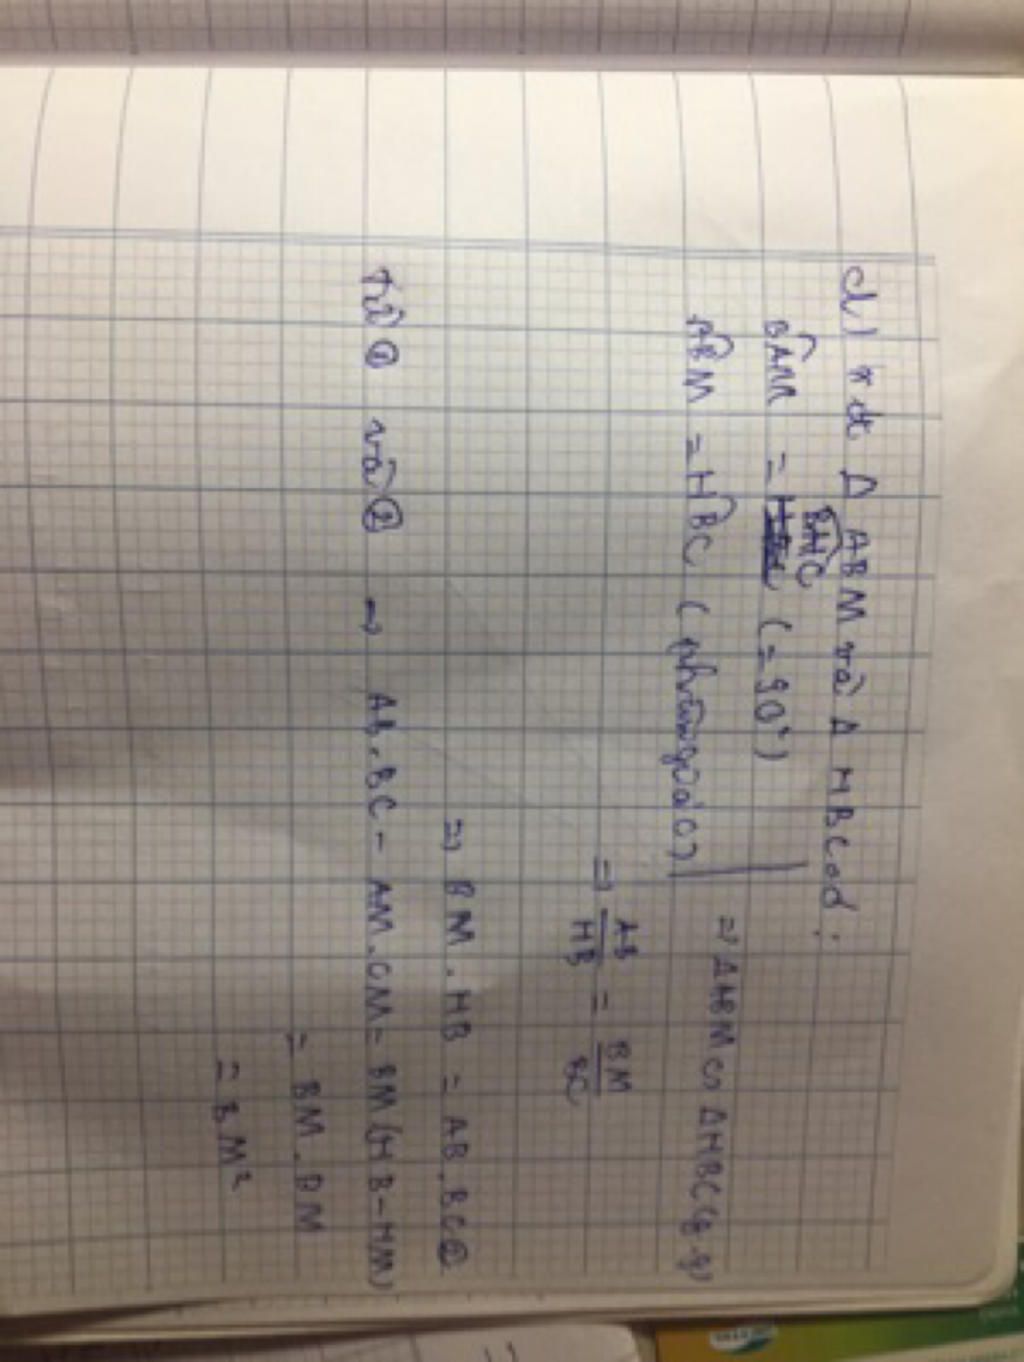 d,) xét Δ ABM và Δ HBC có :
BHC
BAM = (=90°)
ABM = HBC (phân giác)
=> ΔABM ∽ ΔHBC (g-g)
=> AB/HB = BM/BC
=> BM . HB = AB . BC ②
Từ ① và ② => AB . BC - AM . CM = BM (HB - HM)
= BM . BM
= BM²